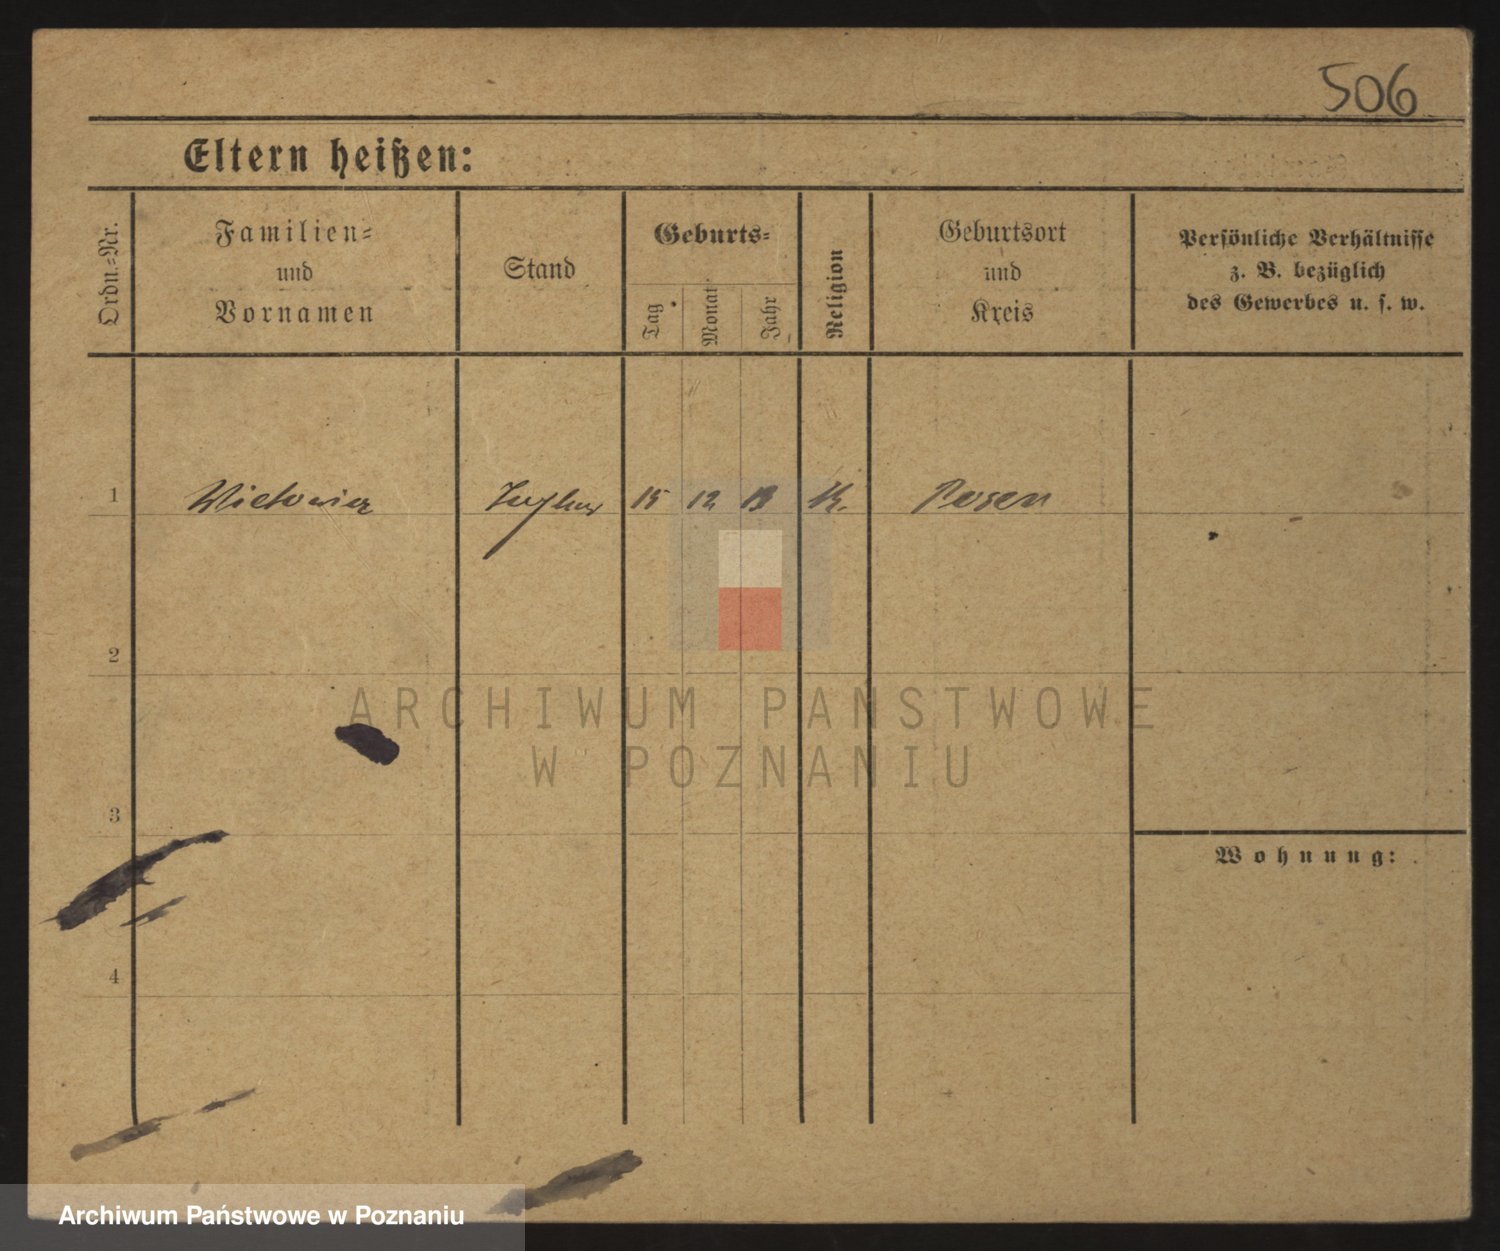 506
Eltern heißen:
Ordn.-Nr.
Familien-
und
Vornamen
Stand
Geburts-
Tag
Monat
Jahr
Religion
Geburtsort
und
Kreis
Persönliche Verhältnisse
z. B. bezüglich
des Gewerbes u. s. w.
1 15 12 13 K. Posen
2
ARCHIWUM PAŃSTWOWE
W POZNANIU
3
Wohnung:
4
Archiwum Państwowe w Poznaniu